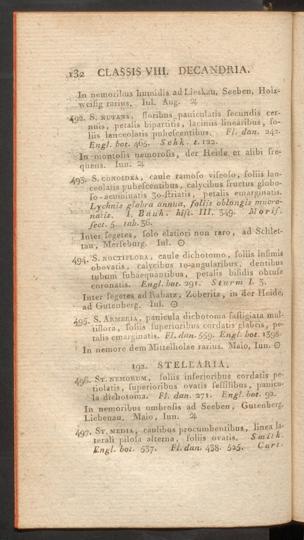 132 CLASSIS VIII. DECANDRIA.
In nemoribus humidis ad Lieskau, Seeben, Holz-
weissig rarius. Iul. Aug. ♃
492. S. NUTANS, floribus paniculatis secundis cer-
nuis, petalis bipartitis, laciniis linearibus, fo-
liis lanceolatis pubescentibus. Fl. dan. 242.
Engl. bot. 465. Schk. t. 122.
In montosis nemorosis, der Heide et alibi fre-
quens. Iun. ♃
493. S. CONOIDEA, caule ramoso viscoso, foliis lan-
ceolatis pubescentibus, calycibus fructus globo-
so-acuminatis 30-striatis, petalis emarginatis.
Lychnis glabra annua, foliis oblongis mucro-
natis. I. Bauh. hist. III. 349. Moris.
sect. 5. tab. 36.
Inter segetes, solo elatiori non raro, ad Schlet-
tau, Merseburg. Iul. ⊙
494. S. NOCTIFLORA, caule dichotomo, foliis infimis
obovatis, calycibus 10-angularibus, dentibus
tubum subaequantibus, petalis bifidis obtuse
coronatis. Engl. bot. 291. Sturm I. 3.
Inter segetes ad Rabatz, Zoberitz, in der Heide,
ad Gutenberg. Iul. ⊙
495. S. ARMERIA, panicula dichotoma fastigiata mul-
tiflora, foliis superioribus cordatis glabris, pe-
talis emarginatis. Fl. dan. 559. Engl. bot. 1398.
In nemore dem Mittelholze rarius. Maio, Iun. ⊙
192. STELLARIA.
496. ST. NEMORUM, foliis inferioribus cordatis pe-
tiolatis, superioribus ovatis sessilibus, panicu-
la dichotoma. Fl. dan. 271. Engl. bot. 92.
In nemoribus umbrosis ad Seeben, Gutenberg,
Liebenau. Maio, Iun. ♃
497. ST. MEDIA, caulibus procumbentibus, linea la-
terali pilosa alterna, foliis ovatis. Smith.
Engl. bot. 537. Fl. dan. 438. 525. Curt.